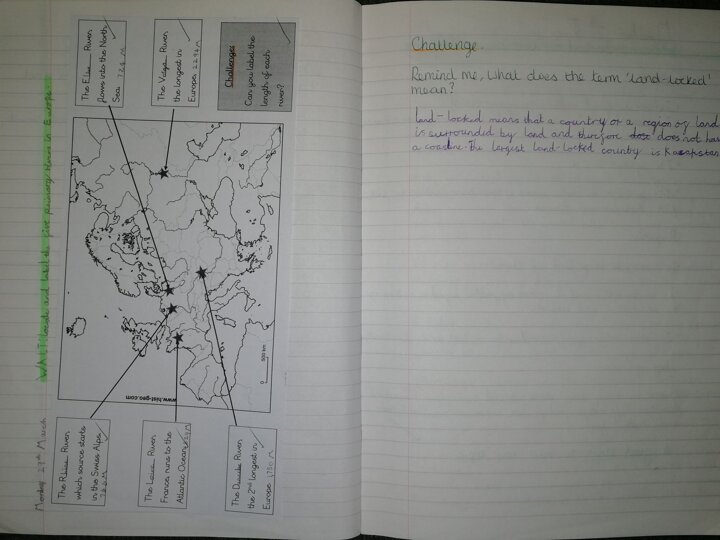 Monday 27th March
W.A.L.T locate and label the five primary rivers in Europe.
The Elbe River
flows into the North
Sea. 724 M
The Volga River
the longest in
Europe. 2294M
Challenges
Can you label the
length of each
river?
www.hist-geo.com
500 km
0
The Rhine River
which source starts
in the Swiss Alps
The Loire River
France runs to the
Atlantic Ocean
The Danube River
the 2nd longest in
Europe
Challenge.
Remind me, what does the term 'land-locked'
mean?
land-locked means that a country or a region of land
is surrounded by land and therefore does not have
a coastline. The largest land-locked country is